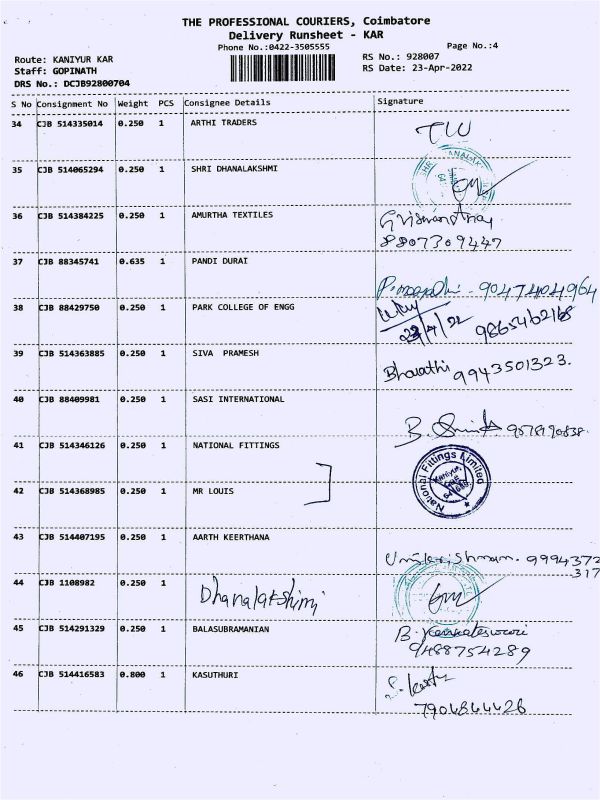 THE PROFESSIONAL COURIERS, Coimbatore
Delivery Runsheet - KAR
Phone No.:0422-3505555 Page No.:4
Route: KANIYUR KAR RS No.: 928007
Staff: GOPINATH RS Date: 23-Apr-2022
DRS No.: DCJB92800704
S No Consignment No Weight PCS Consignee Details Signature
34 CJB 514335014 0.250 1 ARTHI TRADERS
35 CJB 514065294 0.250 1 SHRI DHANALAKSHMI
36 CJB 514384225 0.250 1 AMURTHA TEXTILES
8807309447
37 CJB 88345741 0.635 1 PANDI DURAI
9047404964
38 CJB 88429750 0.250 1 PARK COLLEGE OF ENGG
9865462168
39 CJB 514363885 0.250 1 SIVA PRAMESH
Bharathi 9943501323.
40 CJB 88409981 0.250 1 SASI INTERNATIONAL
41 CJB 514346126 0.250 1 NATIONAL FITTINGS
National Fittings Limited
Kaniyur,
42 CJB 514368985 0.250 1 MR LOUIS
43 CJB 514407195 0.250 1 AARTH KEERTHANA
Unnikrishnan. 9994372
317
44 CJB 1108982 0.250 1 Dhanalakshimi
45 CJB 514291329 0.250 1 BALASUBRAMANIAN
B. Venkateswari
9488754289
46 CJB 514416583 0.800 1 KASUTHURI
7904844426